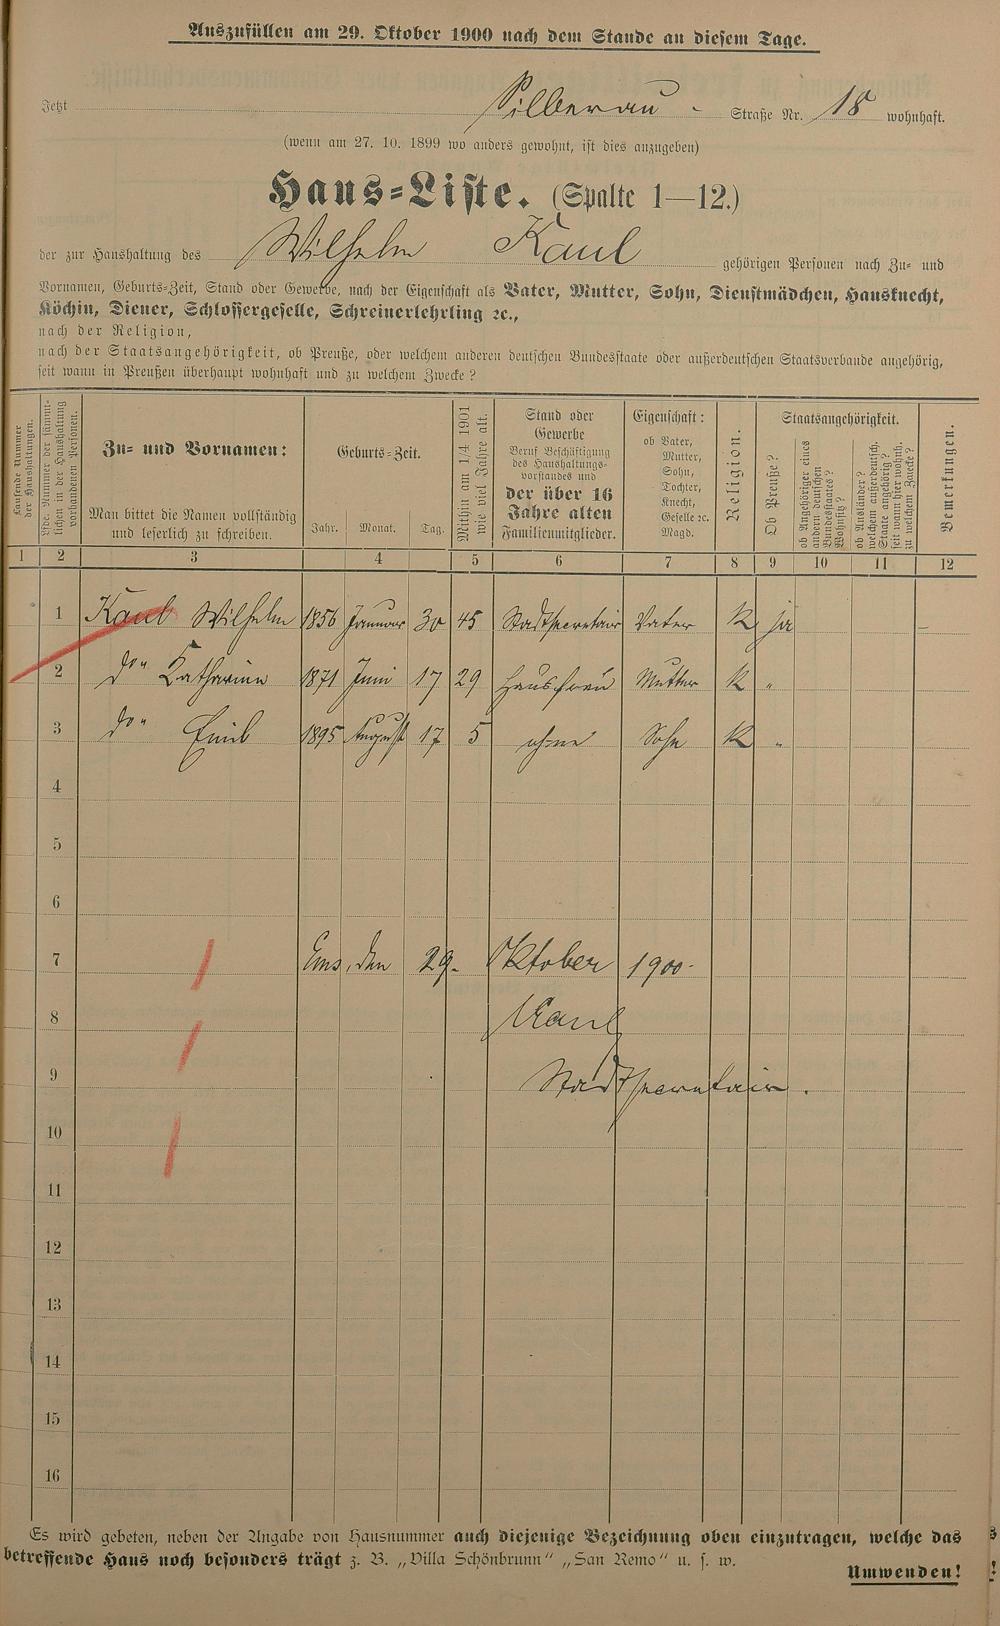 Auszufüllen am 29. Oktober 1900 nach dem Stande an diesem Tage.
Jetzt Silberau - Straße Nr. 18 wohnhaft.
(wenn am 27. 10. 1899 wo anders gewohnt, ist dies anzugeben)
Haus-Liste. (Spalte 1—12.)
der zur Haushaltung des Wilhelm Kaul gehörigen Personen nach Zu- und
Vornamen, Geburts-Zeit, Stand oder Gewerbe, nach der Eigenschaft als Vater, Mutter, Sohn, Dienstmädchen, Hausknecht,
Köchin, Diener, Schlossergeselle, Schreinerlehrling ec.,
nach der Religion,
nach der Staatsangehörigkeit, ob Preuße, oder welchem anderen deutschen Bundesstaate oder außerdeutschen Staatsverbande angehörig,
seit wann in Preußen überhaupt wohnhaft und zu welchem Zwecke?
Laufende Nummer der Haushaltungen.
Lfde. Nummer der sämmtlichen in der Haushaltung vorhandenen Personen.
Zu- und Vornamen:
Man bittet die Namen vollständig
und leserlich zu schreiben.
Geburts-Zeit.
Jahr. Monat. Tag.
Mithin am 1/4 1901
wie viel Jahre alt.
Stand oder
Gewerbe
Beruf Beschäftigung
des Haushaltungs-
vorstandes und
der über 16
Jahre alten
Familienmitglieder.
Eigenschaft:
ob Vater,
Mutter,
Sohn,
Tochter,
Knecht,
Geselle ec.
Magd.
Religion.
Staatsangehörigkeit.
Ob Preuße?
ob Angehöriger eines
andern deutschen
Bundesstaates?
Wohnsitz?
ob Ausländer?
welchem außerdeutsch.
Staate angehörig?
seit wann hier wohnh.
zu welchem Zwecke?
Bemerkungen.
1 2 3 4 5 6 7 8 9 10 11 12
1 Kaul Wilhelm 1856 Januar 30 45 Stadtsecretair Vater K ja
2 do" Katharina 1871 Juni 17 29 Hausfrau Mutter K "
3 do" Emil 1895 August 17 5 ohne Sohn K "
4
5
6
7 Ems, den 29. Oktober 1900.
8 Kaul
9 Stadtsecretair.
10
11
12
13
14
15
16
Es wird gebeten, neben der Angabe von Hausnummer auch diejenige Bezeichnung oben einzutragen, welche das
betreffende Haus noch besonders trägt z. B. „Villa Schönbrunn" „San Remo" u. s. w.
Umwenden!